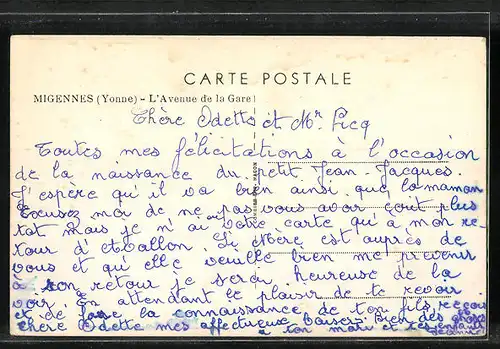 CARTE POSTALE
MIGENNES (Yonne) - L'Avenue de la Gare
Chère Odette et Mr Picq
Toutes mes félicitations à l'occasion
de la naissance du petit Jean-Jacques.
J'espère qu'il va bien ainsi que la maman
Excusez moi de ne pas vous avoir écrit plus
tot mais je n'ai eu votre carte qu'a mon re-
tour d'Avallon. Si Mère est auprès de
vous et qu'elle veuille bien me prévenir
à son retour je serai heureuse de la
voir. En attendant le plaisir de te revoir
et de faire la connaissance de ton fils, reçois
chère Odette mes affectueux baisers. Bien des choses
à ton mari et